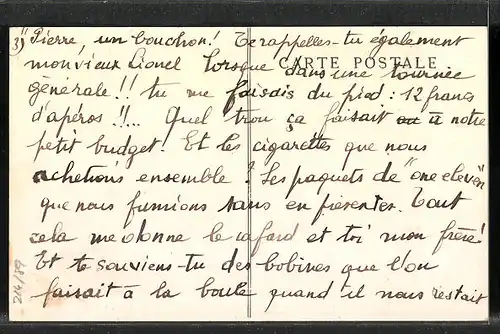 3)" Pierre, un bouchon! Te rappelles-tu également
mon vieux Lionel lorsque dans une tournée
CARTE POSTALE
générale!! tu me faisais du pied: 12 francs
d'apéros!!... Quel trou ça faisait à notre
petit budget! Et les cigarettes que nous
achetions ensemble? Les paquets de "one eleven"
que nous fumions sans en présenter. Tout
cela me donne le cafard et toi mon frère!
Et te souviens-tu des bobines que l'on
faisait à la boule quand il nous restait
214/89